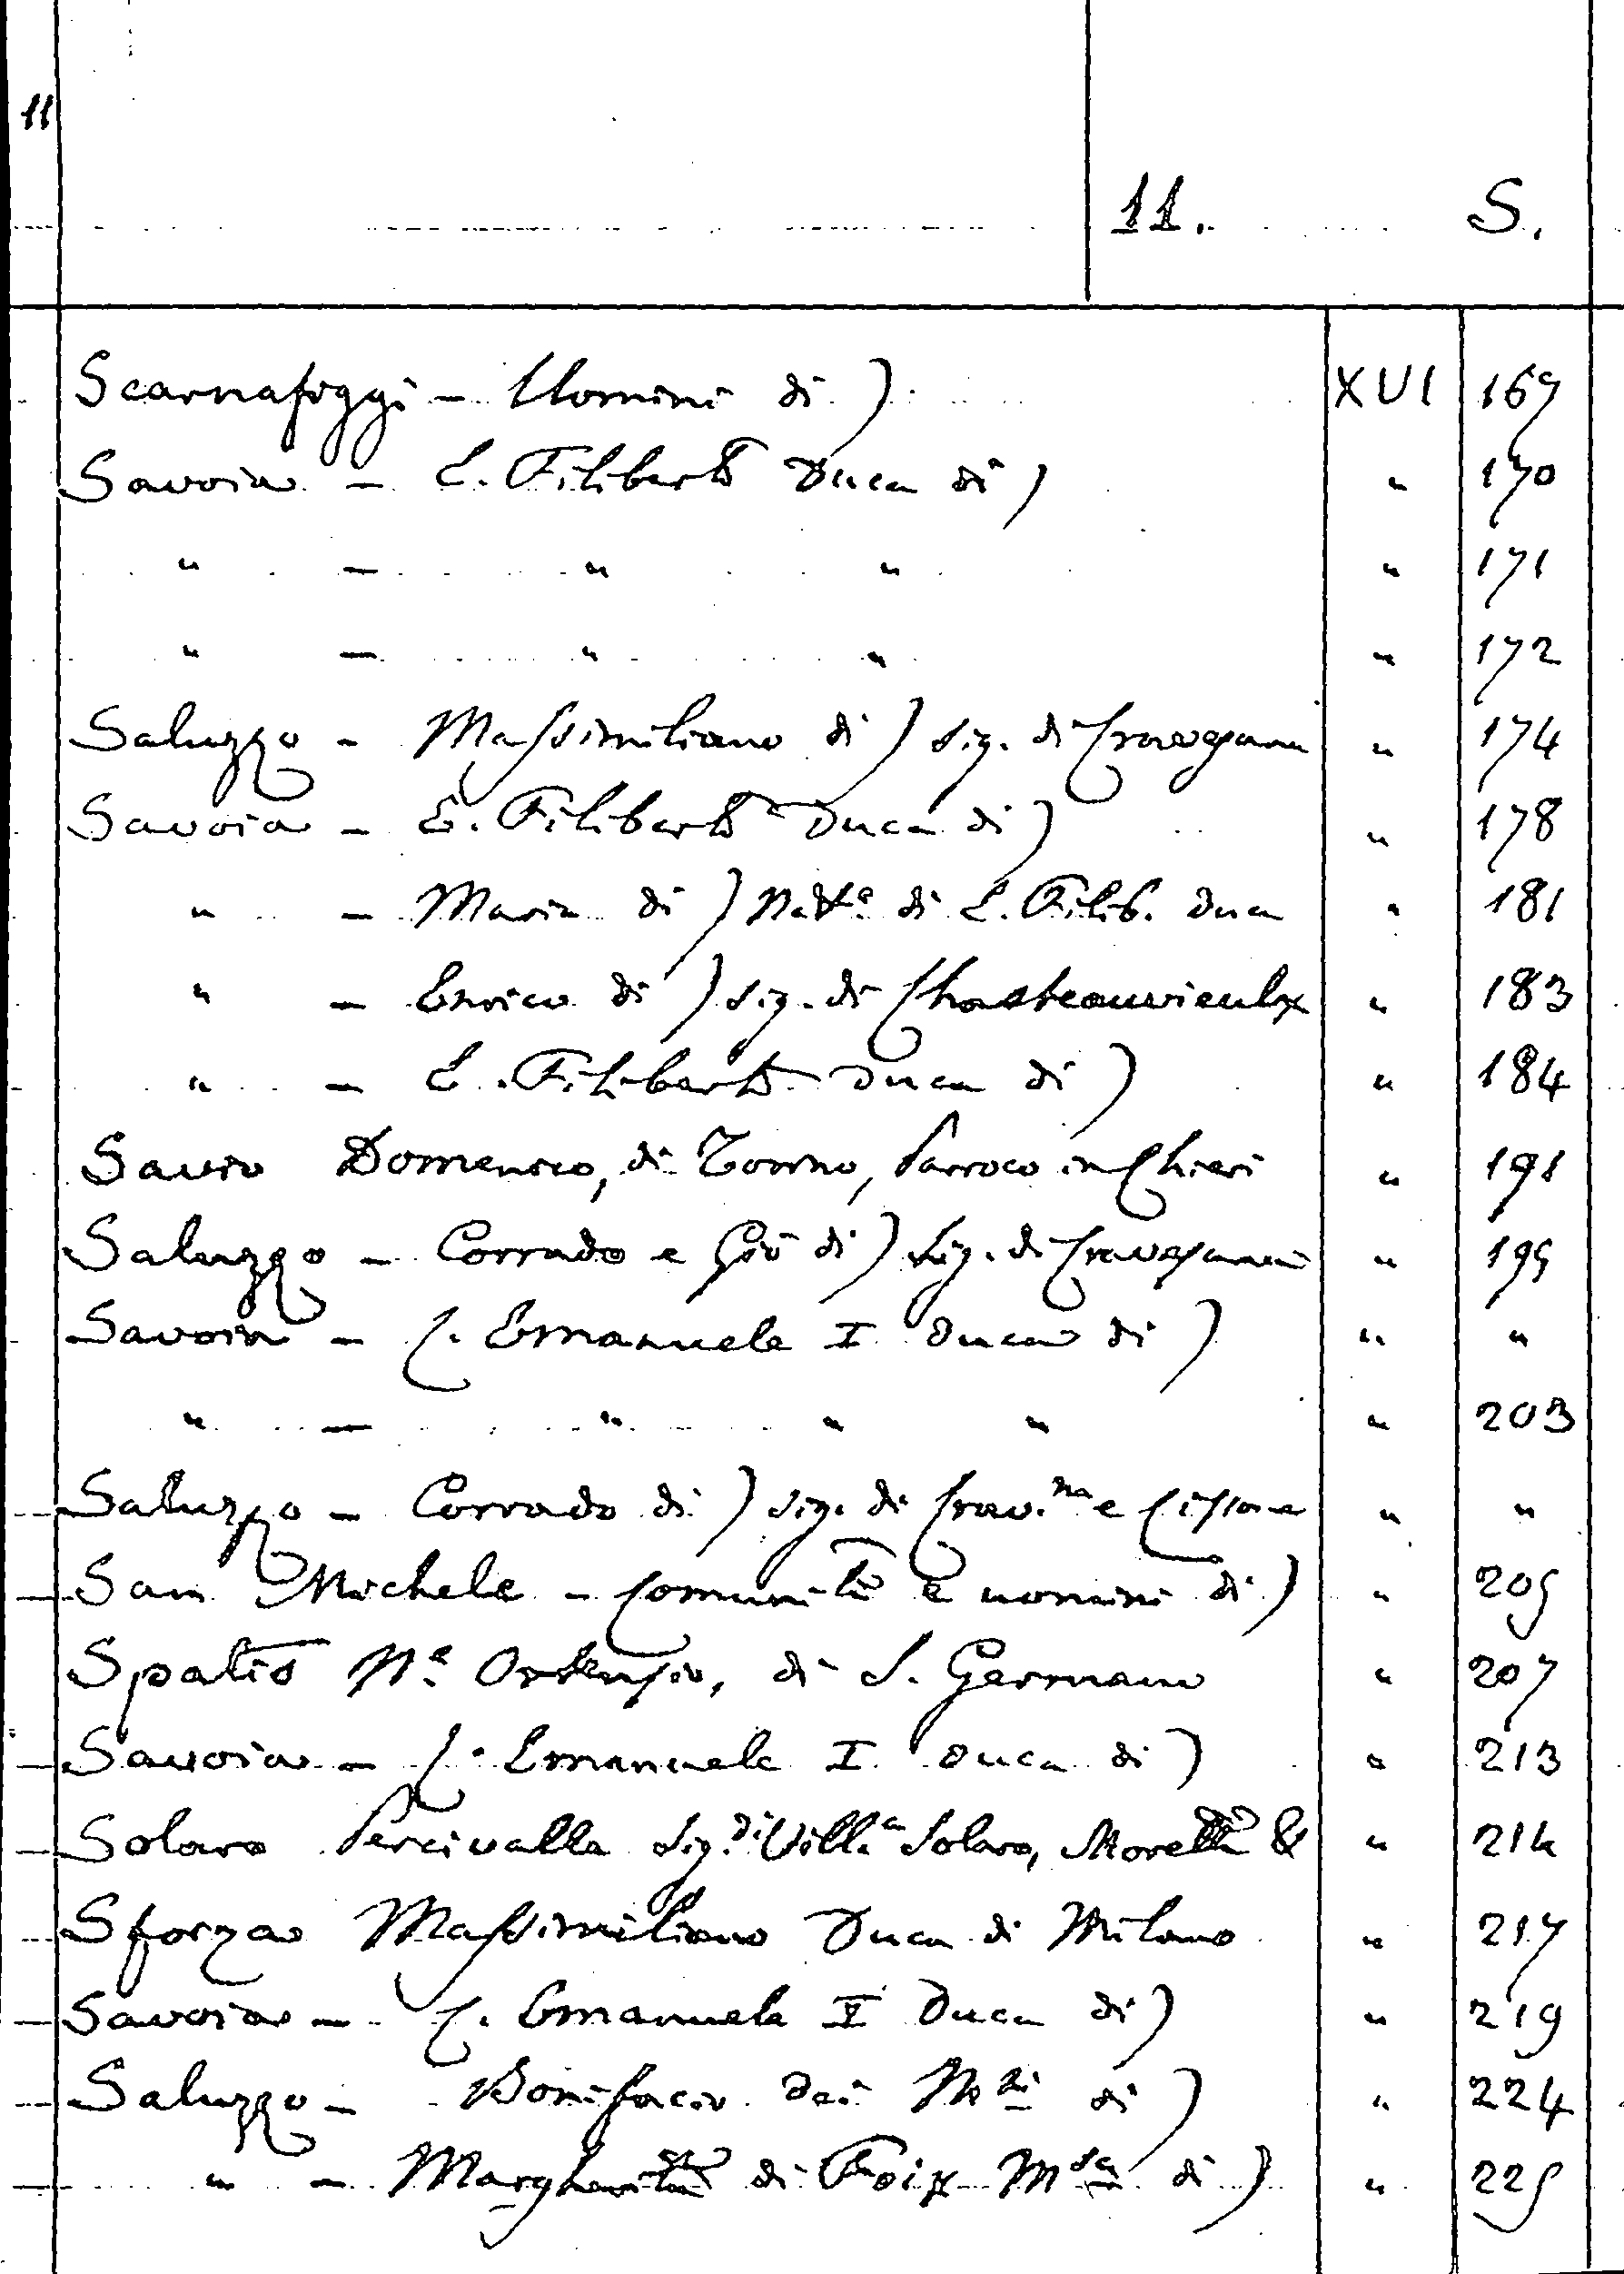 11
11. S.
Scarnafiggi - Uomini di) XVI 169
Savoia - E. Filiberto Duca di) " 170
" - " " " 171
" - " " " 172
Saluzzo - Massimiliano di) Sig. di Cravesana " 174
Savoia - E. Filiberto Duca di) " 178
" - Maria di) Natle di E. Filib. Duca " 181
" - Enrico di) Sig. di Chasteauvieulx " 183
" - E. Filiberto Duca di) " 184
Savio Domenico, di Torino, Parroco in Chieri " 191
Saluzzo - Corrado e Gio di) Sig. di Cravesana " 195
Savoia - C. Emanuele I Duca di) " "
" - " " " " 203
Saluzzo - Corrado di) Sig. di Crav.na e Cissone " "
San Michele - Comunità e uomini di) " 205
Spatis Ne. Ortensio, di S. Germano " 207
Savoia - C. Emanuele I Duca di) " 213
Solaro Percivalle Sig. di Villa Solaro, Moretta & " 214
Sforza Massimiliano Duca di Milano " 217
Savoia - C. Emanuele I Duca di) " 219
Saluzzo - Bonifacio dei Msi di) " 224
" - Margherita di Foix Msa di) " 225